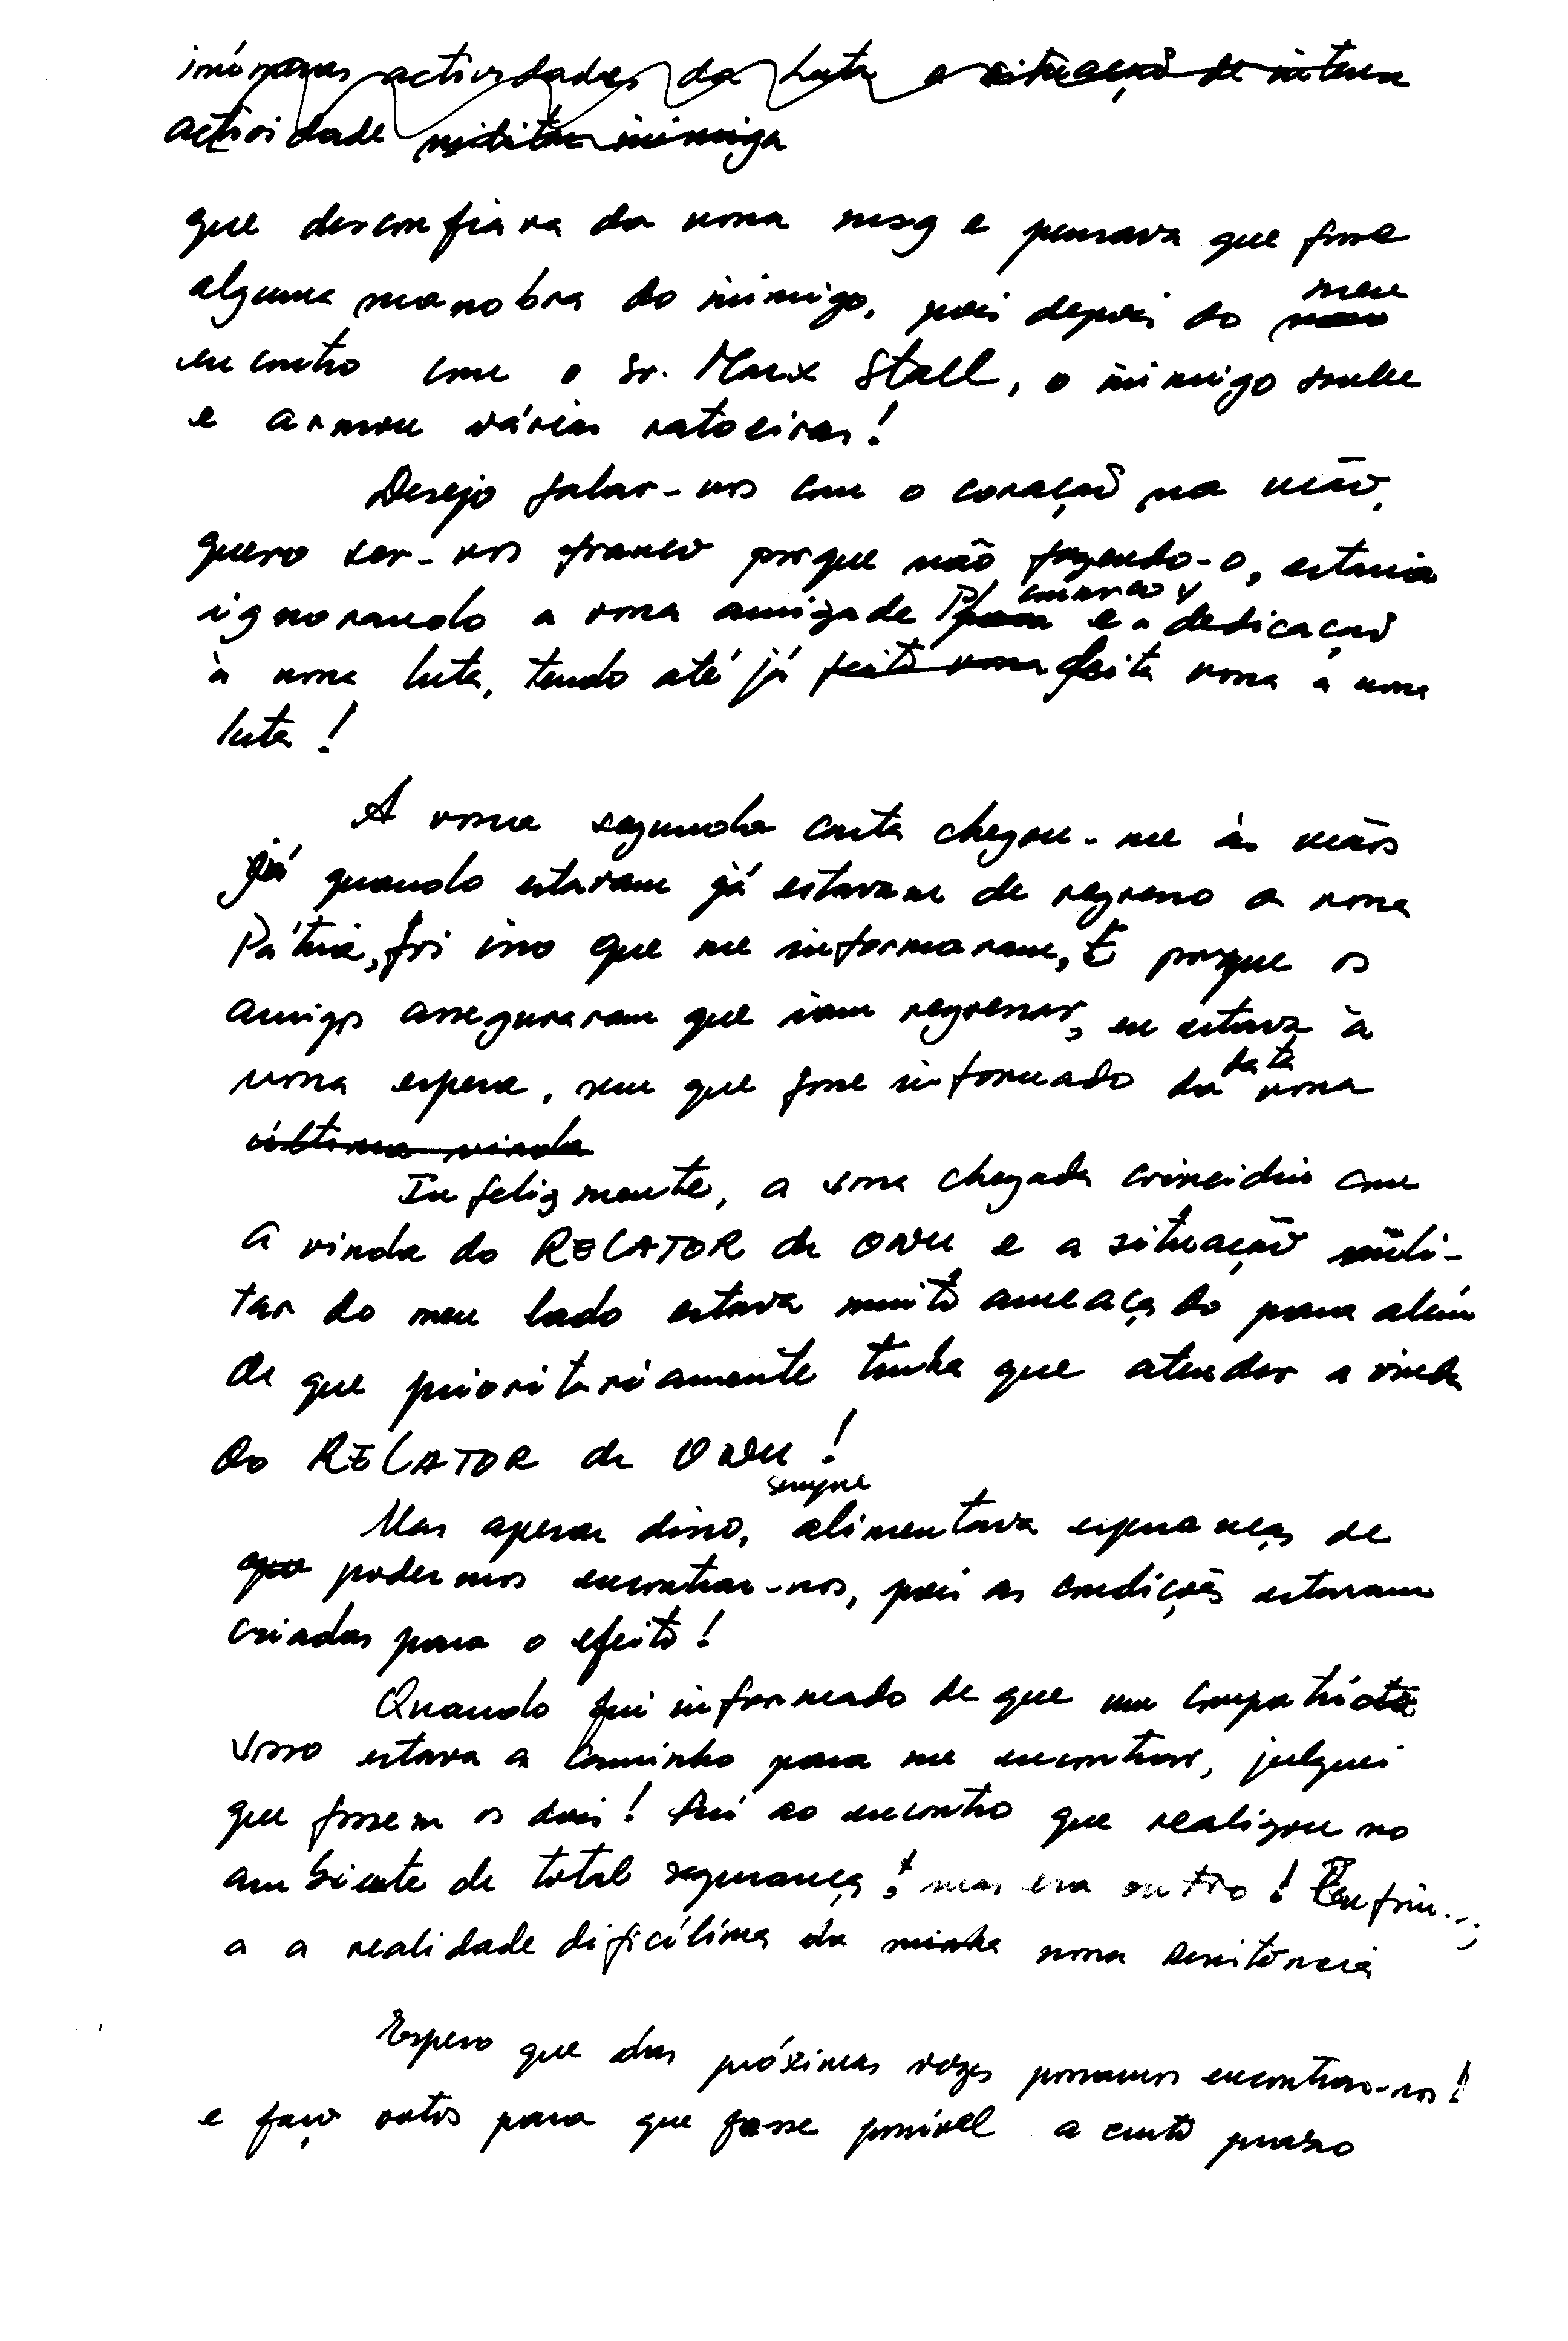 inúmeras actividades da Luta e situação de intensa
actividade militar inimiga
que desconfiava da vossa mesg e pensava que fosse
alguma manobra do inimigo, pois depois do meu
encontro com o Sr. Marx Stall, o inimigo soube
e armou várias ratoeiras!
Desejo falar-vos com o coração na mão,
quero ser-vos franco porque não fazendo-o, estaria
ignorando a vossa amizade p/ connosco e a dedicação
à nossa luta, tendo até já feito vossa feita vossa a nossa
luta!
A vossa segunda carta chegou-me às mãos
já quando estavam já estavam de regresso a vossa
Pátria, foi isso que me informaram, E porque os
amigos asseguraram que iam regressar, eu estava à
vossa espera, sem que fosse informado da data vossa
última vinda
Infelizmente, a vossa chegada coincidiu com
a vinda do RELATOR da ONU e a situação mili-
tar do meu lado estava muito ameaçado para além
de que prioritáriamente tinha que atender a vinda
do RELATOR da ONU!
Mas apesar disso, sempre alimentava esperanças de
que podermos encontrar-nos, pois as condições estavam
criadas para o efeito!
Quando fui informado de que um compatriota
vosso estava a caminho para me encontrar, julguei
que fossem os dois! Fui ao encontro que realizou no
ambiente de total segurança, mas era outro! Enfim...
a a realidade dificílima da minha nossa Resistência
Espero que das próximas vezes possamos encontrar-nos!
e faço votos para que fosse possível a curto prazo